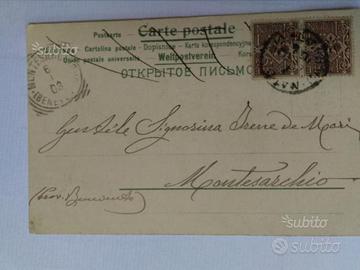 Postkarte Carte postale
Cartolina postale - Dopisnice - Karta korespondencyjna
Union postale universelle Weltpostverein
ОТКРЫТОЕ ПИСЬМО
Gentile Signorina Irene de Mari
Montesarchio
(Prov. Benevento)
subito
subito